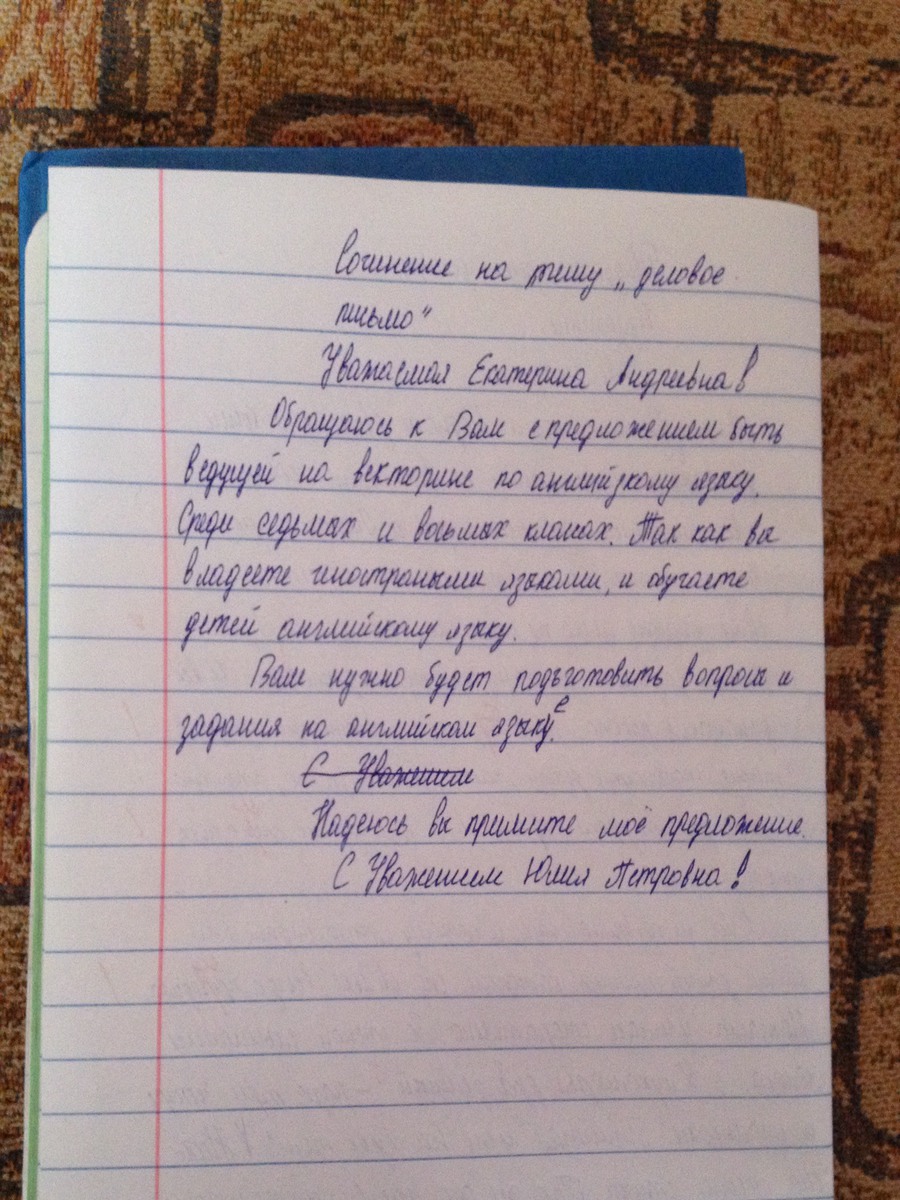 Сочинение на тему „деловое
письмо"
Уважаемая Екатерина Андреевна!
Обращаюсь к Вам с предложением быть
ведущей на векторине по англйзкому языку.
Среди седьмых и восьмых класах. Так как вы
владеете иностраными языками, и обучаете
детей английскому языку.
Вам нужно будет подьготовить вопросы и
задания на английском языке.
С Уважением
Надеюсь вы примите моё предложение.
С Уважением Юлия Петровна!